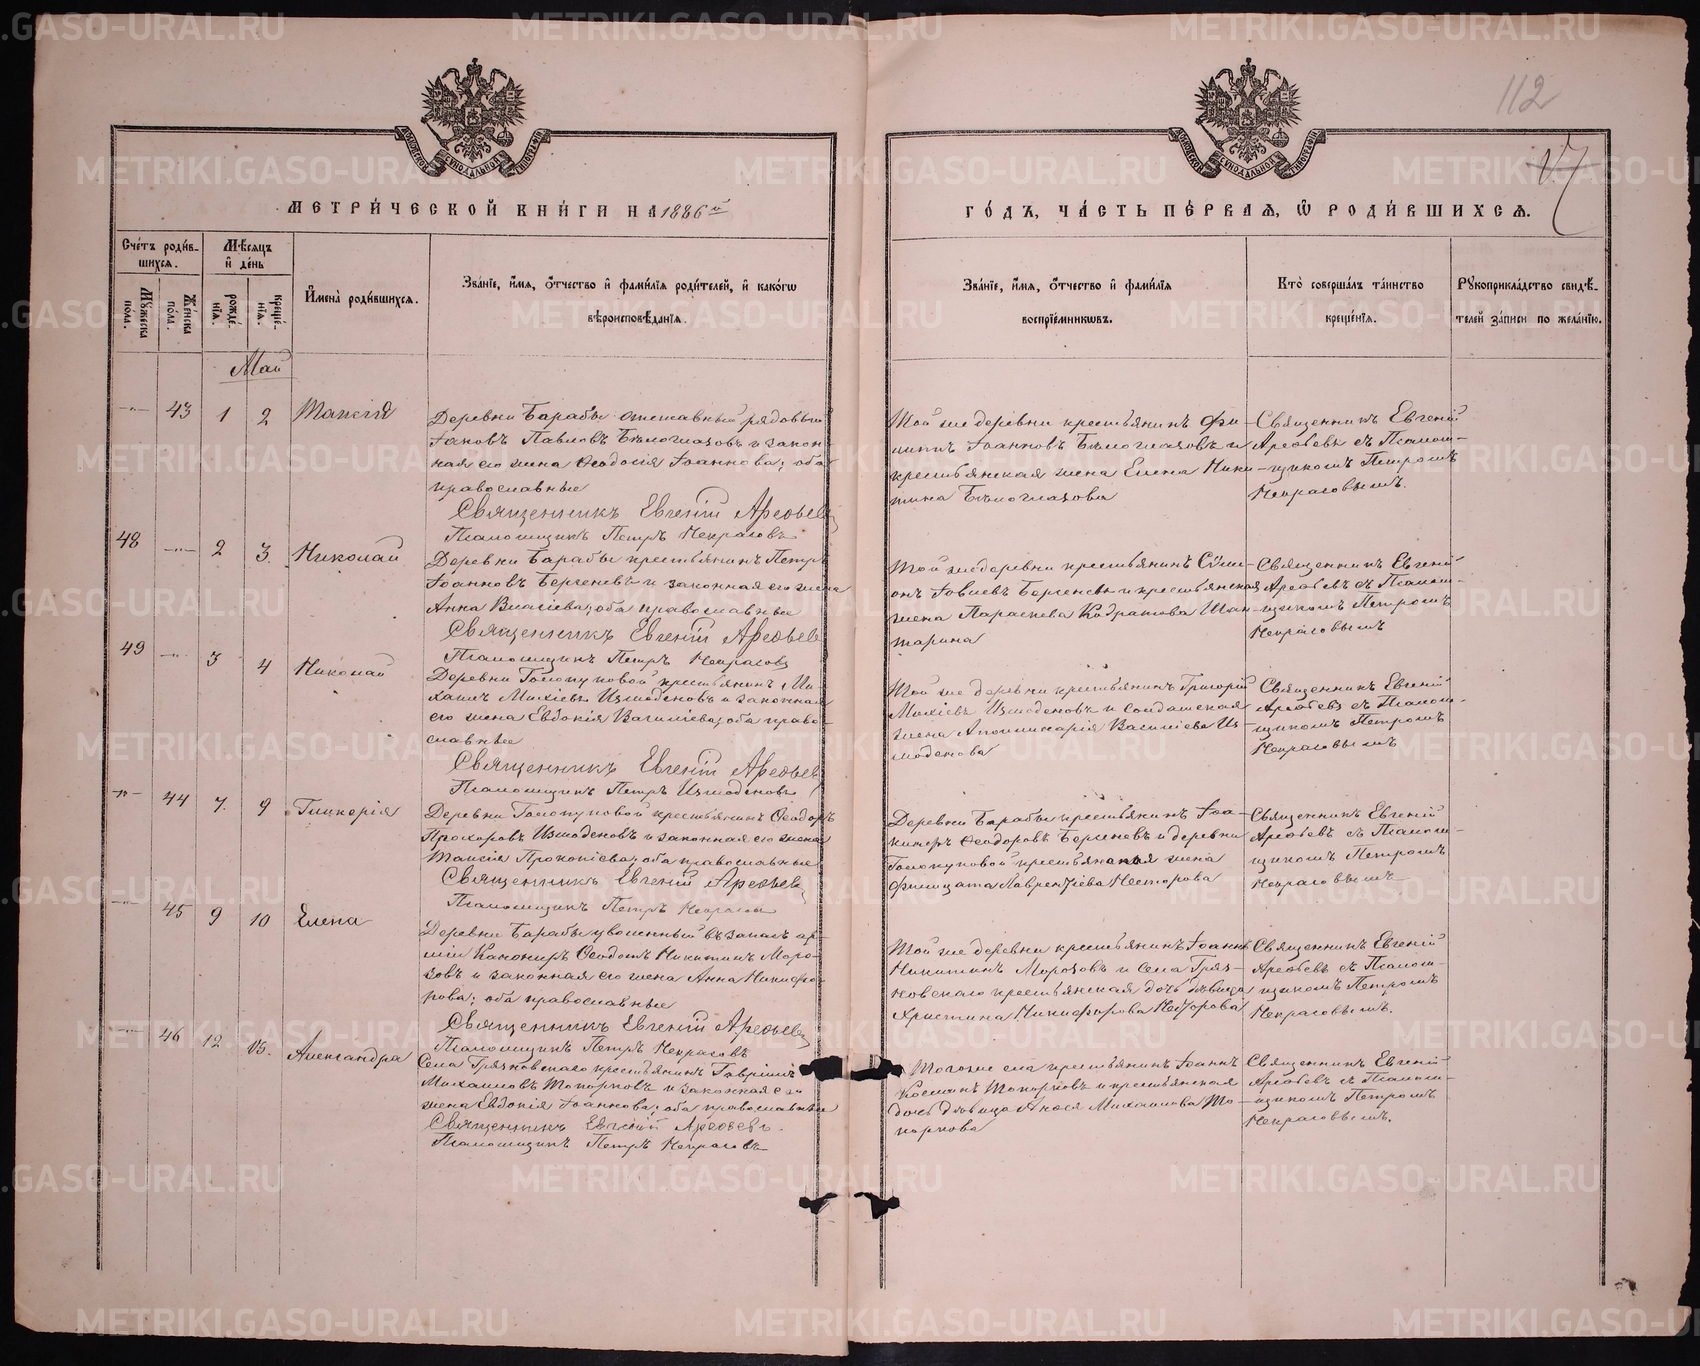 112
МЕТРИ́ЧЕСКОЙ КНИ́ГИ НА 1886й
ГО́ДЪ, ЧА́СТЬ ПЕ́РВАЯ, Ѿ РОДИ́ВШИХСѦ.
Сче́тъ роди́вшихсѧ.
Мꙋжеска пола.
Женска пола.
Мѣ́сѧцъ и де́нь
рожде́нїѧ.
креще́нїѧ.
И҆мена̀ роди́вшихсѧ.
Зва́нїе, и҆́мѧ, ѻ҆́тчество и҆ фами́лїѧ роди́телей, и҆ како́гѡ
вѣроисповѣ́данїѧ.
Зва́нїе, и҆́мѧ, ѻ҆́тчество и҆ фами́лїѧ
воспрїе́мникѡвъ.
Кто̀ соверша́лъ та́инство
креще́нїѧ.
Рꙋкоприкла́дство свидѣ́-
телей за́писи по жела́нїю.
Май
43 1 2 Таисія
Деревни Барабы отставный рядовый
Іаковъ Павловъ Бѣлоглазовъ и закон
ная его жена Ѳеодосія Іоаннова; оба
православные
Священникъ Евгеній Арефьев
Псаломщикъ Петръ Некрасовъ
Той же деревни крестьянинъ Фи-
липпъ Іоанновъ Бѣлоглазовъ и
крестьянская жена Елена Ники-
тина Бѣлоглазова
Священникъ Евгеній
Арефьевъ съ Псалом-
щикомъ Петромъ
Некрасовымъ.
48 2 3 Николай
Деревни Барабы крестьянинъ Петръ
Іоанновъ Бергеневъ и законная его жена
Анна Власіева; оба православные
Священникъ Евгеній Арефьев
Псаломщикъ Петръ Некрасовъ
Той же деревни крестьянинъ
Бергеневъ и крестьянская
жена Параскева Кодратова
Священникъ Евгеній
Арефьевъ съ Псалом-
щикомъ Петромъ
Некрасовымъ
49 3 4 Николай
Деревни Голопуповой крестьянинъ Ми-
хаилъ Михіевъ Измоденовъ и законная
его жена Евдокія Василіева; оба право-
славные
Священникъ Евгеній Арефьев
Псаломщикъ Петръ Измоденовъ
Той же деревни крестьянинъ Григорій
Михіевъ Измоденовъ и солдатская
жена Аполлинарія Василіева Из-
моденова
Священникъ Евгеній
Арефьевъ съ Псалом-
щикомъ Петромъ
Некрасовымъ
44 7 9 Гликерія
Деревни Голопуповой крестьянинъ Ѳеодоръ
Прохоровъ Измоденовъ и законная его жена
Таисія Прокопіева; оба православные
Священникъ Евгеній Арефьев
Псаломщикъ Петръ Некрасов
Деревни Барабы крестьянинъ Іоа-
кимъ Ѳеодоровъ Бергеневъ и деревни
Голопуповой крестьянская жена
Филицата Лаврентіева Несторова
Священникъ Евгеній
Арефьевъ съ Псалом-
щикомъ Петромъ
Некрасовымъ
45 9 10 Елена
Деревни Барабы уволенный въ запасъ ар-
міи Канониръ Ѳеодотъ Никитинъ Моро-
зовъ и законная его жена Анна Никифо-
рова; оба православные
Священникъ Евгеній Арефьев
Псаломщикъ Петръ Некрасовъ
Той же деревни крестьянинъ Іоаннъ
Никитинъ Морозовъ и села Гряз-
новскаго крестьянская дочь дѣвица
Христина Никифорова
Священникъ Евгеній
Арефьевъ съ Псалом-
щикомъ Петромъ
Некрасовымъ.
46 12 15. Александра
Села Грязновскаго крестьянинъ Гавріилъ
Михаиловъ Топорковъ и законная его
жена Евдокія Іоаннова; оба православные
Священникъ Евгеній Арефьевъ.
Псаломщикъ Петръ Некрасовъ
Того же села крестьянинъ Іоаннъ
Косминъ Топорковъ и крестьянская
дочь дѣвица Михаилова То-
поркова
Священникъ Евгеній
Арефьевъ съ Псалом-
щикомъ Петромъ
Некрасовымъ.
METRIKI.GASO-URAL.RU